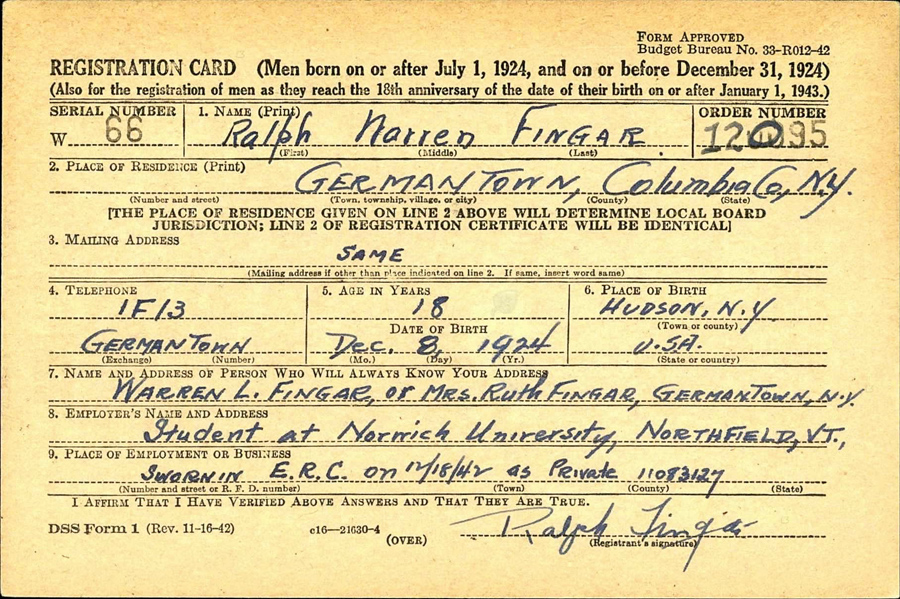 FORM APPROVED
Budget Bureau No. 33-R012-42
REGISTRATION CARD (Men born on or after July 1, 1924, and on or before December 31, 1924)
(Also for the registration of men as they reach the 18th anniversary of the date of their birth on or after January 1, 1943.)
SERIAL NUMBER 1. NAME (Print) ORDER NUMBER
W 66 Ralph Warren FINGAR 12095
(First) (Middle) (Last)
2. PLACE OF RESIDENCE (Print)
GERMANTOWN, Columbia Co, N.Y.
(Number and street) (Town, township, village, or city) (County) (State)
[THE PLACE OF RESIDENCE GIVEN ON LINE 2 ABOVE WILL DETERMINE LOCAL BOARD
JURISDICTION; LINE 2 OF REGISTRATION CERTIFICATE WILL BE IDENTICAL]
3. MAILING ADDRESS
SAME
(Mailing address if other than place indicated on line 2. If same, insert word same)
4. TELEPHONE 5. AGE IN YEARS 6. PLACE OF BIRTH
1F13 18 HUDSON, N.Y
DATE OF BIRTH (Town or county)
GERMANTOWN Dec. 8, 1924 U.SA.
(Exchange) (Number) (Mo.) (Day) (Yr.) (State or country)
7. NAME AND ADDRESS OF PERSON WHO WILL ALWAYS KNOW YOUR ADDRESS
WARREN L. FINGAR, or MRS. RUTH FINGAR, GERMANTOWN, N.Y.
8. EMPLOYER'S NAME AND ADDRESS
Student at Norwich University, NORTHFIELD, VT.,
9. PLACE OF EMPLOYMENT OR BUSINESS
SWORN IN E.R.C. on 12/18/42 as Private 11083127
(Number and street or R. F. D. number) (Town) (County) (State)
I AFFIRM THAT I HAVE VERIFIED ABOVE ANSWERS AND THAT THEY ARE TRUE.
DSS Form 1 (Rev. 11-16-42) c16—21630-4 (OVER) Ralph Fingar
(Registrant's signature)